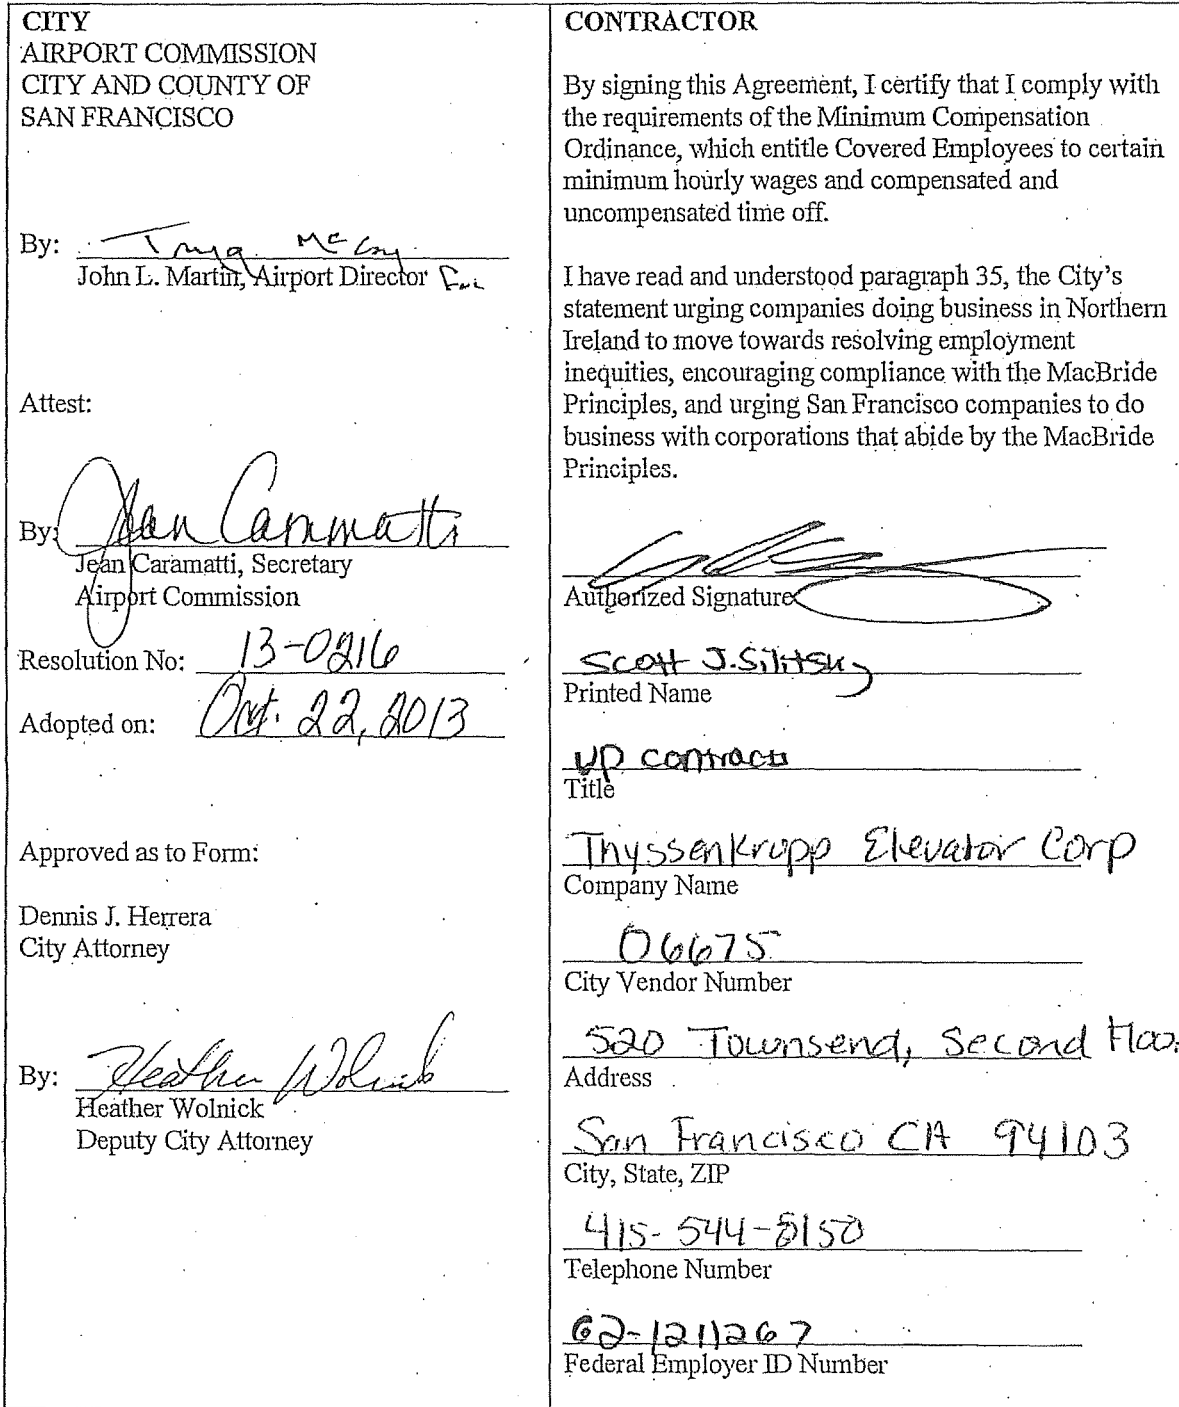 CITY
AIRPORT COMMISSION
CITY AND COUNTY OF
SAN FRANCISCO
By: McCoy
John L. Martin, Airport Director For
Attest:
By: Jean Caramatti
Jean Caramatti, Secretary
Airport Commission
Resolution No: 13-0216
Adopted on: Oct. 22, 2013
Approved as to Form:
Dennis J. Herrera
City Attorney
By: Heather Wolnick
Heather Wolnick
Deputy City Attorney
CONTRACTOR
By signing this Agreement, I certify that I comply with
the requirements of the Minimum Compensation
Ordinance, which entitle Covered Employees to certain
minimum hourly wages and compensated and
uncompensated time off.
I have read and understood paragraph 35, the City's
statement urging companies doing business in Northern
Ireland to move towards resolving employment
inequities, encouraging compliance with the MacBride
Principles, and urging San Francisco companies to do
business with corporations that abide by the MacBride
Principles.
Authorized Signature
Scott J. Silitsky
Printed Name
VP contracts
Title
Thyssenkrupp Elevator Corp
Company Name
06675
City Vendor Number
520 Townsend, Second Floor
Address
San Francisco CA 94103
City, State, ZIP
415-544-8150
Telephone Number
62-1211267
Federal Employer ID Number